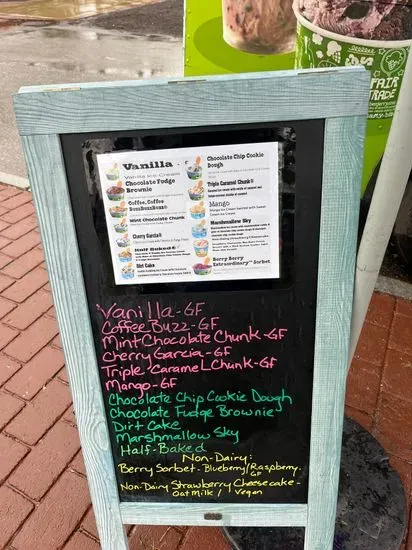 FAIR
TRADE
Vanilla
Vanilla Ice Cream
Chocolate Fudge
Brownie
Coffee, Coffee
BuzzBuzzBuzz®
Mint Chocolate Chunk
Cherry Garcia®
Half Baked®
Dirt Cake
Chocolate Chip Cookie
Dough
Triple Caramel Chunk®
Mango
Marshmallow Sky
Berry Berry
Extraordinary™ Sorbet
Vanilla-GF
Coffee Buzz-GF
Mint Chocolate Chunk-GF
Cherry Garcia-GF
Triple Caramel Chunk-GF
Mango-GF
Chocolate Chip Cookie Dough
Chocolate Fudge Brownie
Dirt Cake
Marshmallow Sky
Half-Baked
Non-Dairy:
Berry Sorbet-Blueberry/Raspberry
GF
Non-Dairy Strawberry Cheesecake-
Oat Milk / Vegan